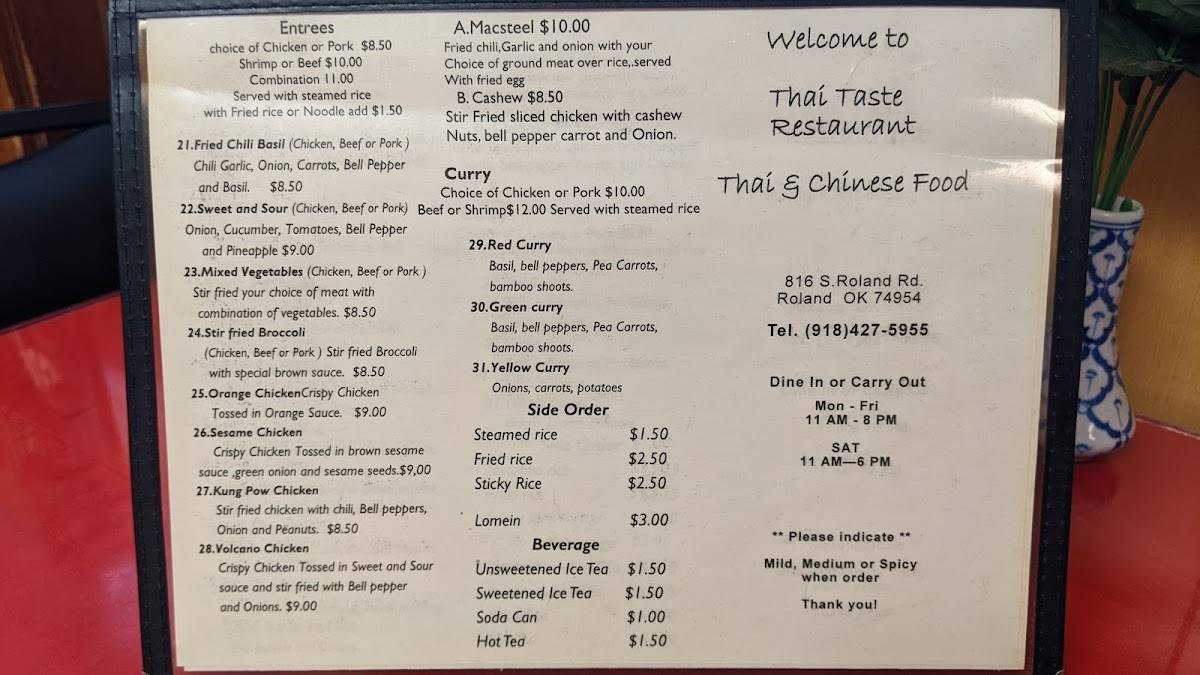 Entrees
choice of Chicken or Pork $8.50
Shrimp or Beef $10.00
Combination 11.00
Served with steamed rice
with Fried rice or Noodle add $1.50
21.Fried Chili Basil (Chicken, Beef or Pork )
Chili Garlic, Onion, Carrots, Bell Pepper
and Basil. $8.50
22.Sweet and Sour (Chicken, Beef or Pork)
Onion, Cucumber, Tomatoes, Bell Pepper
and Pineapple $9.00
23.Mixed Vegetables (Chicken, Beef or Pork )
Stir fried your choice of meat with
combination of vegetables. $8.50
24.Stir fried Broccoli
(Chicken, Beef or Pork ) Stir fried Broccoli
with special brown sauce. $8.50
25.Orange ChickenCrispy Chicken
Tossed in Orange Sauce. $9.00
26.Sesame Chicken
Crispy Chicken Tossed in brown sesame
sauce ,green onion and sesame seeds.$9,00
27.Kung Pow Chicken
Stir fried chicken with chili, Bell peppers,
Onion and Peanuts. $8.50
28.Volcano Chicken
Crispy Chicken Tossed in Sweet and Sour
sauce and stir fried with Bell pepper
and Onions. $9.00
A.Macsteel $10.00
Fried chili,Garlic and onion with your
Choice of ground meat over rice,.served
With fried egg
B. Cashew $8.50
Stir Fried sliced chicken with cashew
Nuts, bell pepper carrot and Onion.
Curry
Choice of Chicken or Pork $10.00
Beef or Shrimp$12.00 Served with steamed rice
29.Red Curry
Basil, bell peppers, Pea Carrots,
bamboo shoots.
30.Green curry
Basil, bell peppers, Pea Carrots,
bamboo shoots.
31.Yellow Curry
Onions, carrots, potatoes
Side Order
Steamed rice $1.50
Fried rice $2.50
Sticky Rice $2.50
Lomein $3.00
Beverage
Unsweetened Ice Tea $1.50
Sweetened Ice Tea $1.50
Soda Can $1.00
Hot Tea $1.50
Welcome to
Thai Taste
Restaurant
Thai & Chinese Food
816 S.Roland Rd.
Roland OK 74954
Tel. (918)427-5955
Dine In or Carry Out
Mon - Fri
11 AM - 8 PM
SAT
11 AM—6 PM
** Please indicate **
Mild, Medium or Spicy
when order
Thank you!